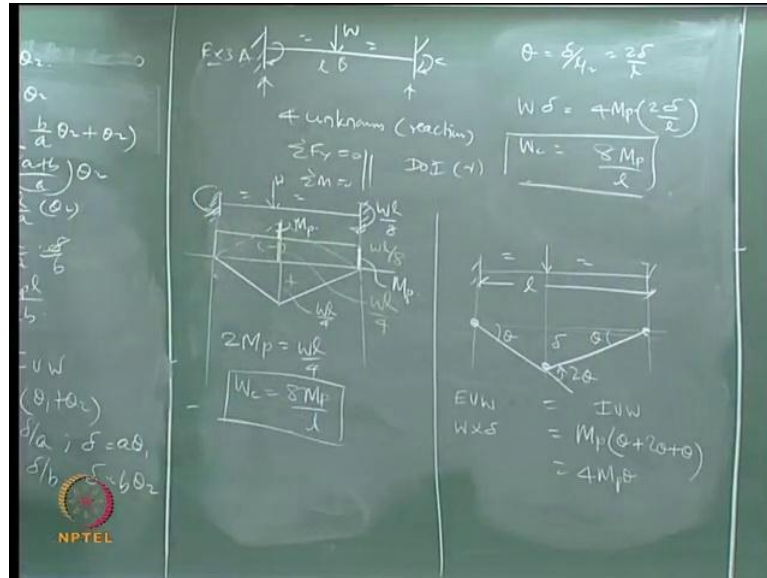 θ₂.
θ₂
b/a θ₂ + θ₂)
(a+b/a) θ₂
(θ₂)
b
(θ₁+θ₂)
δ/a ; δ = aθ₁
δ/b δ = bθ₂
Ex3 A
W
l B
C
4 unknowns (reaction)
ΣFy = 0
ΣM = 0
DoI
W
Wl/8
Mp
Wl/8
(-)
+
Mp
Wl/4
Wl/4
2Mp = Wl/4
Wc = 8Mp/l
θ = δ/l/2 = 2δ/l
Wδ = 4Mp(2δ/l)
Wc = 8Mp/l
l
δ
θ
2θ
EVW = IVW
W×δ = Mp(θ+2θ+θ)
= 4Mpθ
NPTEL